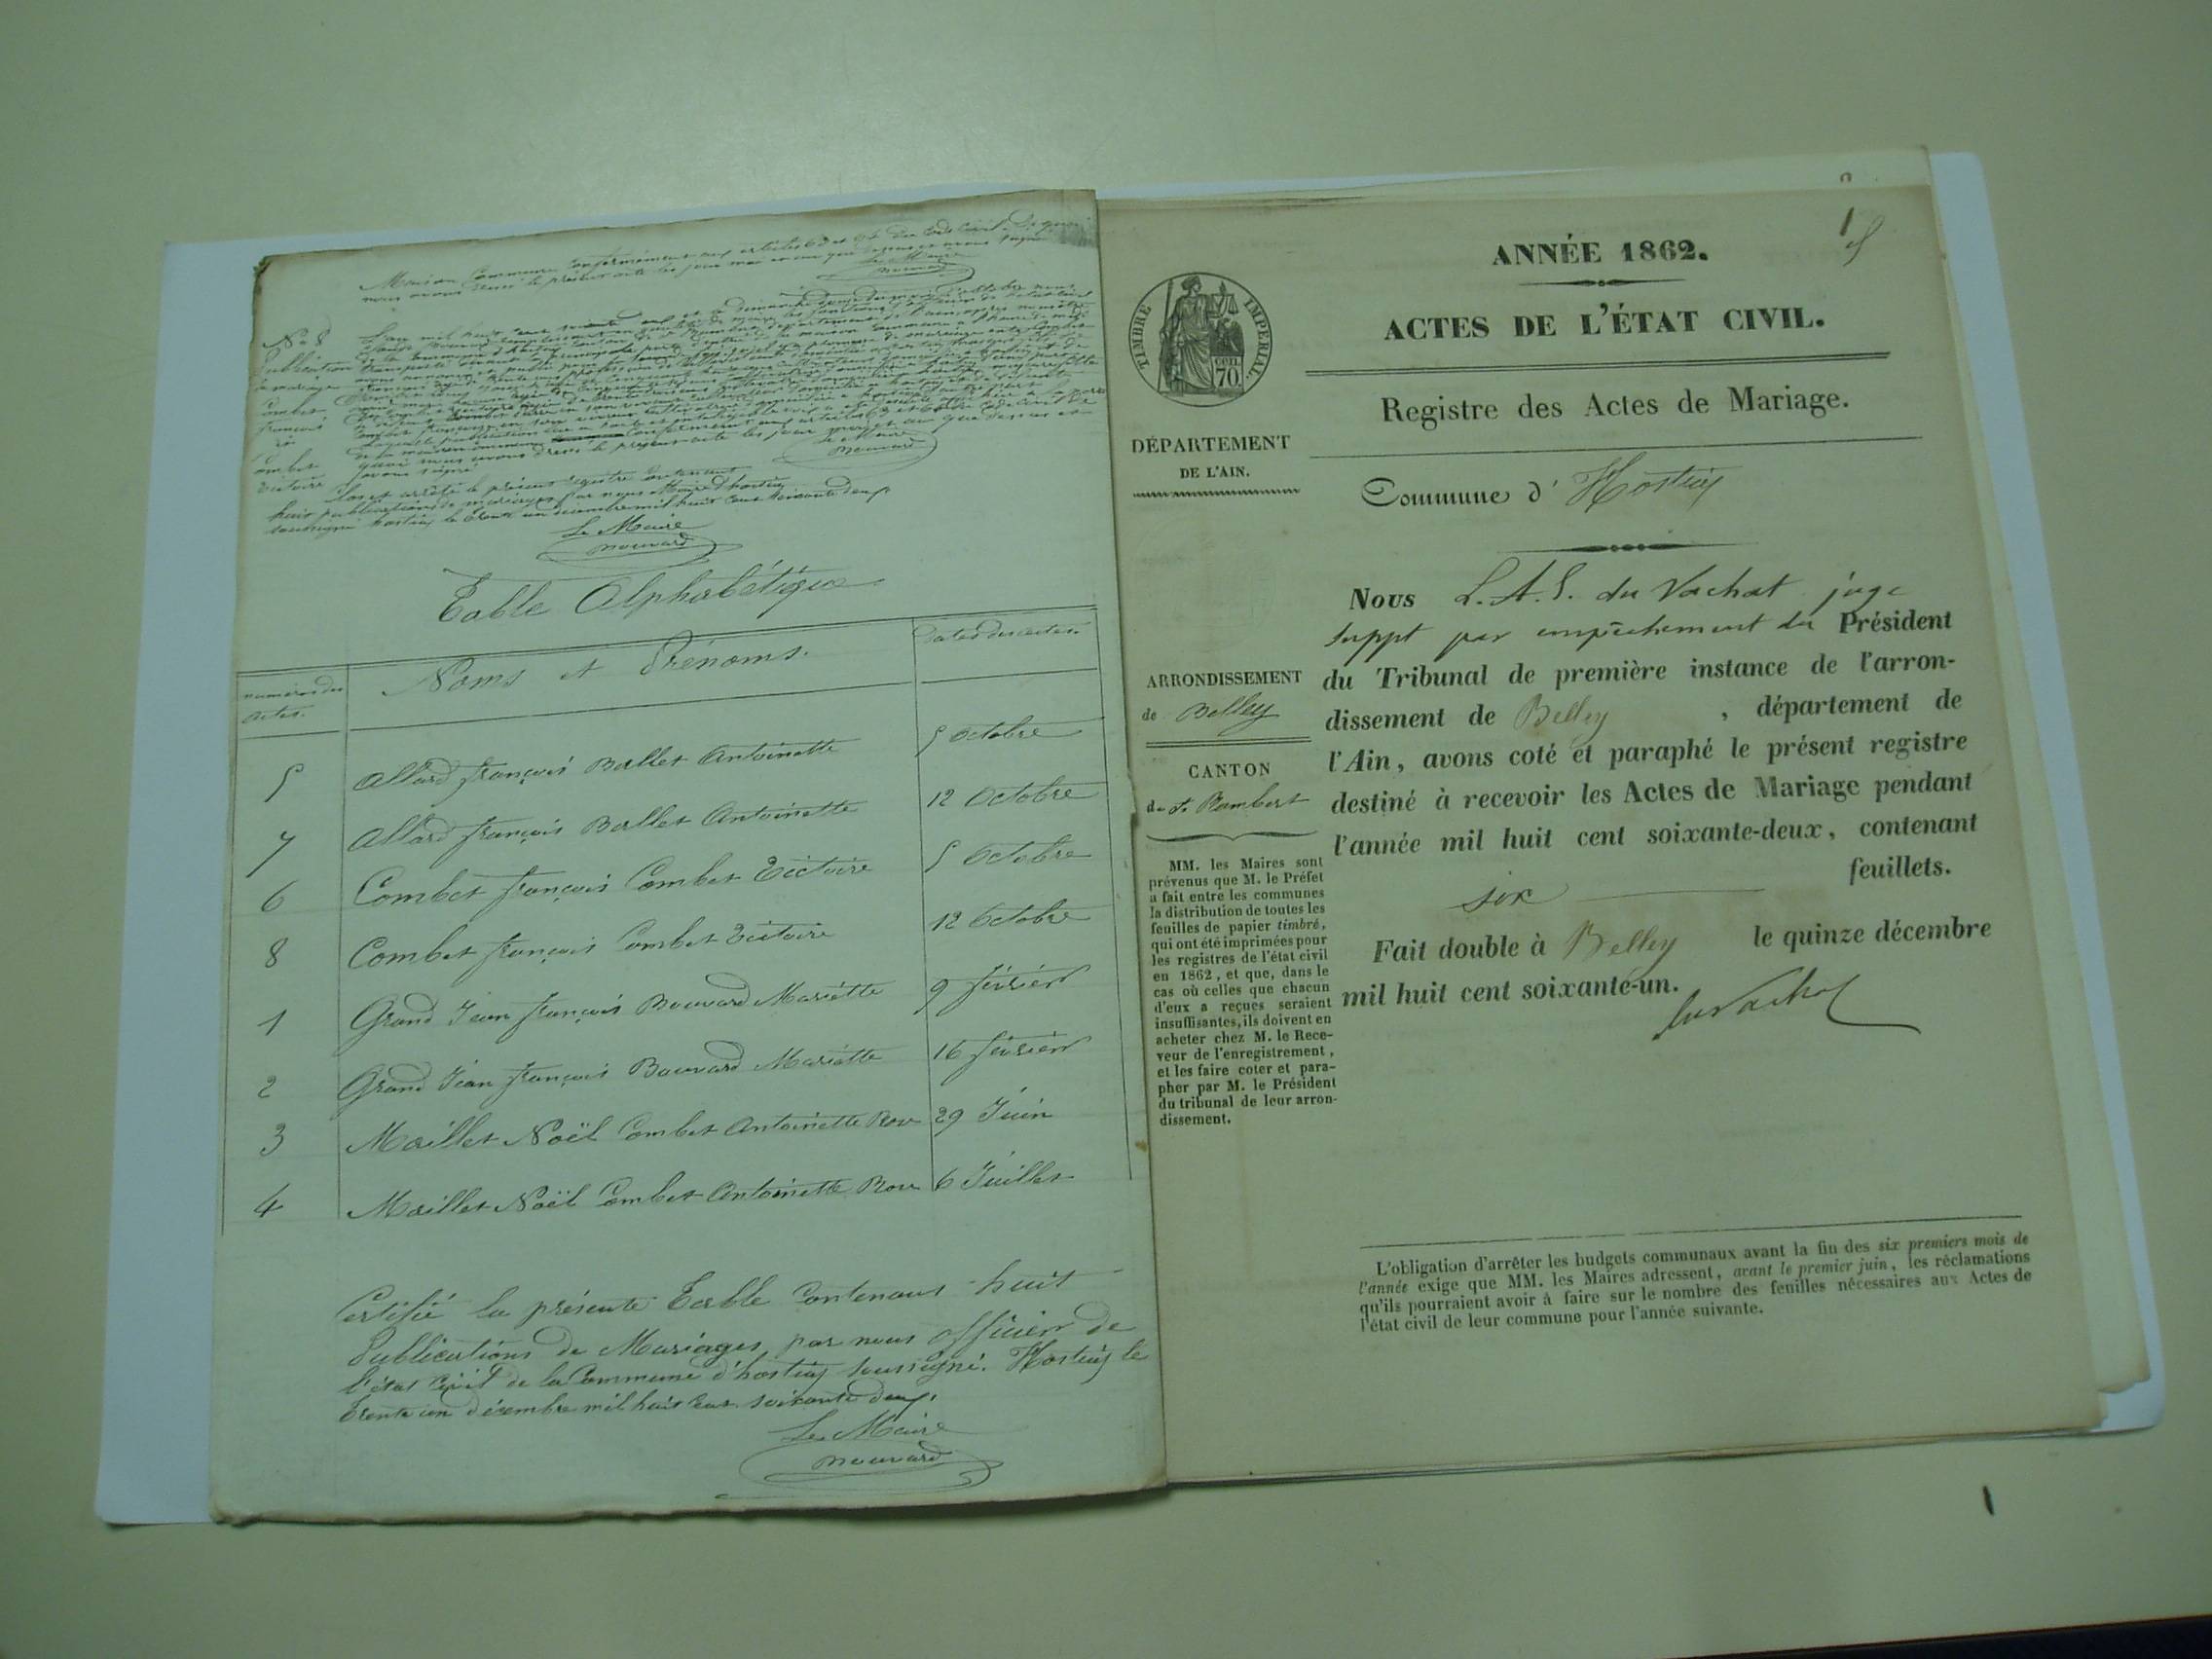 Maison Commune conformément aux articles 63 et 64 du Code Civil. De quoi
nous avons dressé le présent acte les jour moi et an que dessus et avons signé
Le Maire
Bouvard
No 8
Publication
de mariage
Combet
françois
et
Combet
Victoire
Clos et arrêté le présent registre contenant
huit publications de mariages par nous Maire d'hostiaz
soussigné hostiaz le trente un décembre mil huit cent soixante deux
Le Maire
Bouvard
Table Alphabétique
numéros des actes. Noms et Prénoms. Dates des actes.
5 Allard françois Ballet Antoinette 5 Octobre
7 Allard françois Ballet Antoinette 12 Octobre
6 Combet françois Combet Victoire 5 Octobre
8 Combet françois Combet Victoire 12 Octobre
1 Grand Jean françois Bouvard Mariette 9 février
2 Grand Jean françois Bouvard Mariette 16 février
3 Maillet Noël Combet Antoinette Rose 29 Juin
4 Maillet Noël Combet Antoinette Rose 6 Juillet
Certifié la présente Table Contenant huit
Publications de Mariages, par nous officier de
l'état civil de la Commune d'hostiaz soussigné. Hostiaz le
trente un décembre mil huit cent soixante deux.
Le Maire
Bouvard
1
ANNÉE 1862.
ACTES DE L'ÉTAT CIVIL.
Registre des Actes de Mariage.
Commune d' Hostiaz
TIMBRE IMPÉRIAL
CENT. 70
DÉPARTEMENT
DE L'AIN.
ARRONDISSEMENT
de Belley
CANTON
de St Rambert
MM. les Maires sont
prévenus que M. le Préfet
a fait entre les communes
la distribution de toutes les
feuilles de papier timbré,
qui ont été imprimées pour
les registres de l'état civil
en 1862, et que, dans le
cas où celles que chacun
d'eux a reçues seraient
insuffisantes, ils doivent en
acheter chez M. le Rece-
veur de l'enregistrement,
et les faire coter et para-
pher par M. le Président
du tribunal de leur arron-
dissement.
Nous L. A. S. du Vachat juge
suppt par empêchement du Président
du Tribunal de première instance de l'arron-
dissement de Belley , département de
l'Ain, avons coté et paraphé le présent registre
destiné à recevoir les Actes de Mariage pendant
l'année mil huit cent soixante-deux, contenant
six feuillets.
Fait double à Belley le quinze décembre
mil huit cent soixante-un.
du Vachat
L'obligation d'arrêter les budgets communaux avant la fin des six premiers mois de
l'année exige que MM. les Maires adressent, avant le premier juin, les réclamations
qu'ils pourraient avoir à faire sur le nombre des feuilles nécessaires aux Actes de
l'état civil de leur commune pour l'année suivante.